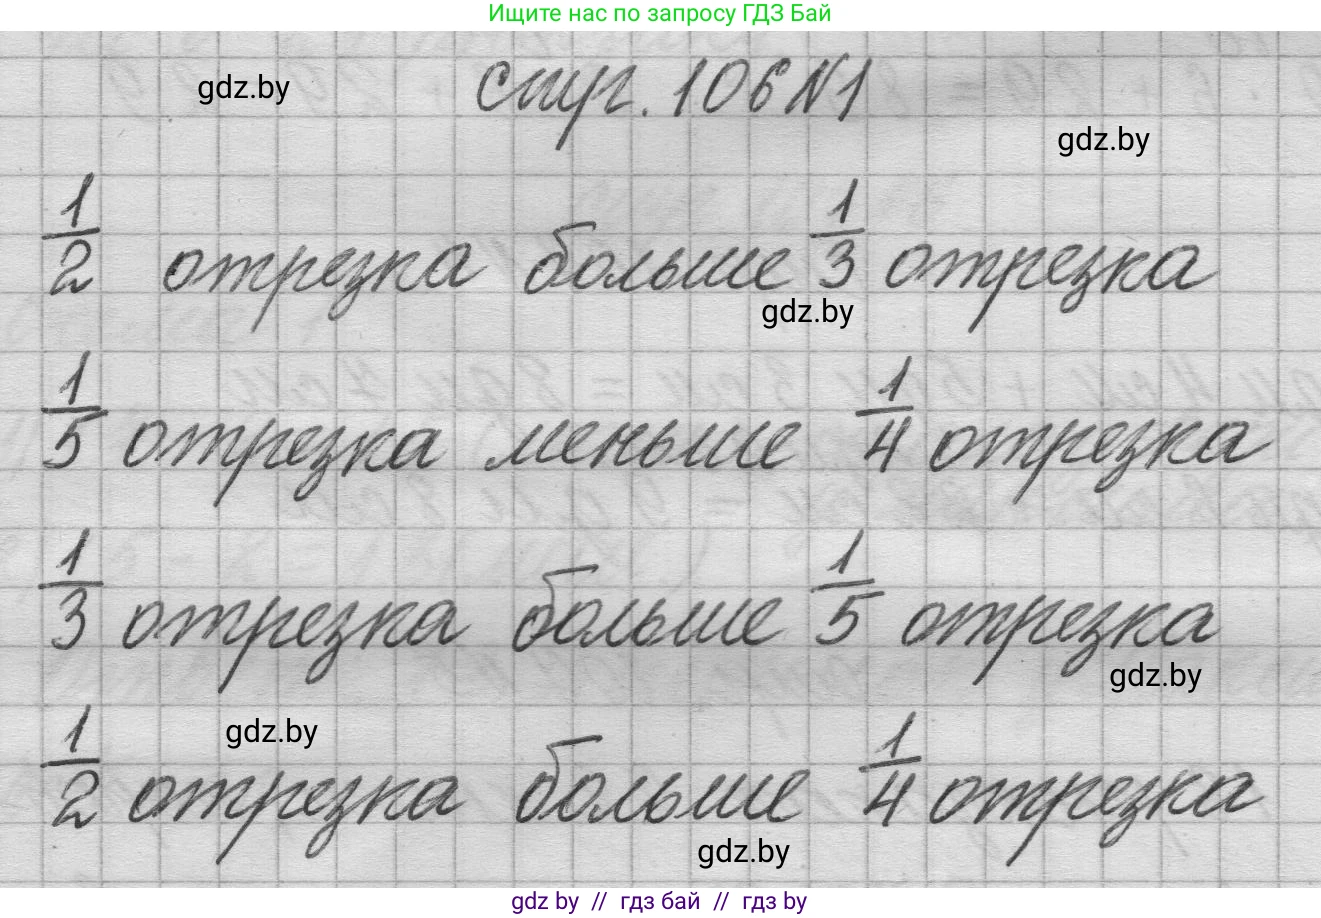 Ищите нас по запросу ГДЗ Бай
gdz.by
Стр. 106 №1
gdz.by
1/2 отрезка больше 1/3 отрезка
gdz.by
1/5 отрезка меньше 1/4 отрезка
1/3 отрезка больше 1/5 отрезка
gdz.by
gdz.by
1/2 отрезка больше 1/4 отрезка
gdz.by
gdz by // гдз бай // гдз by